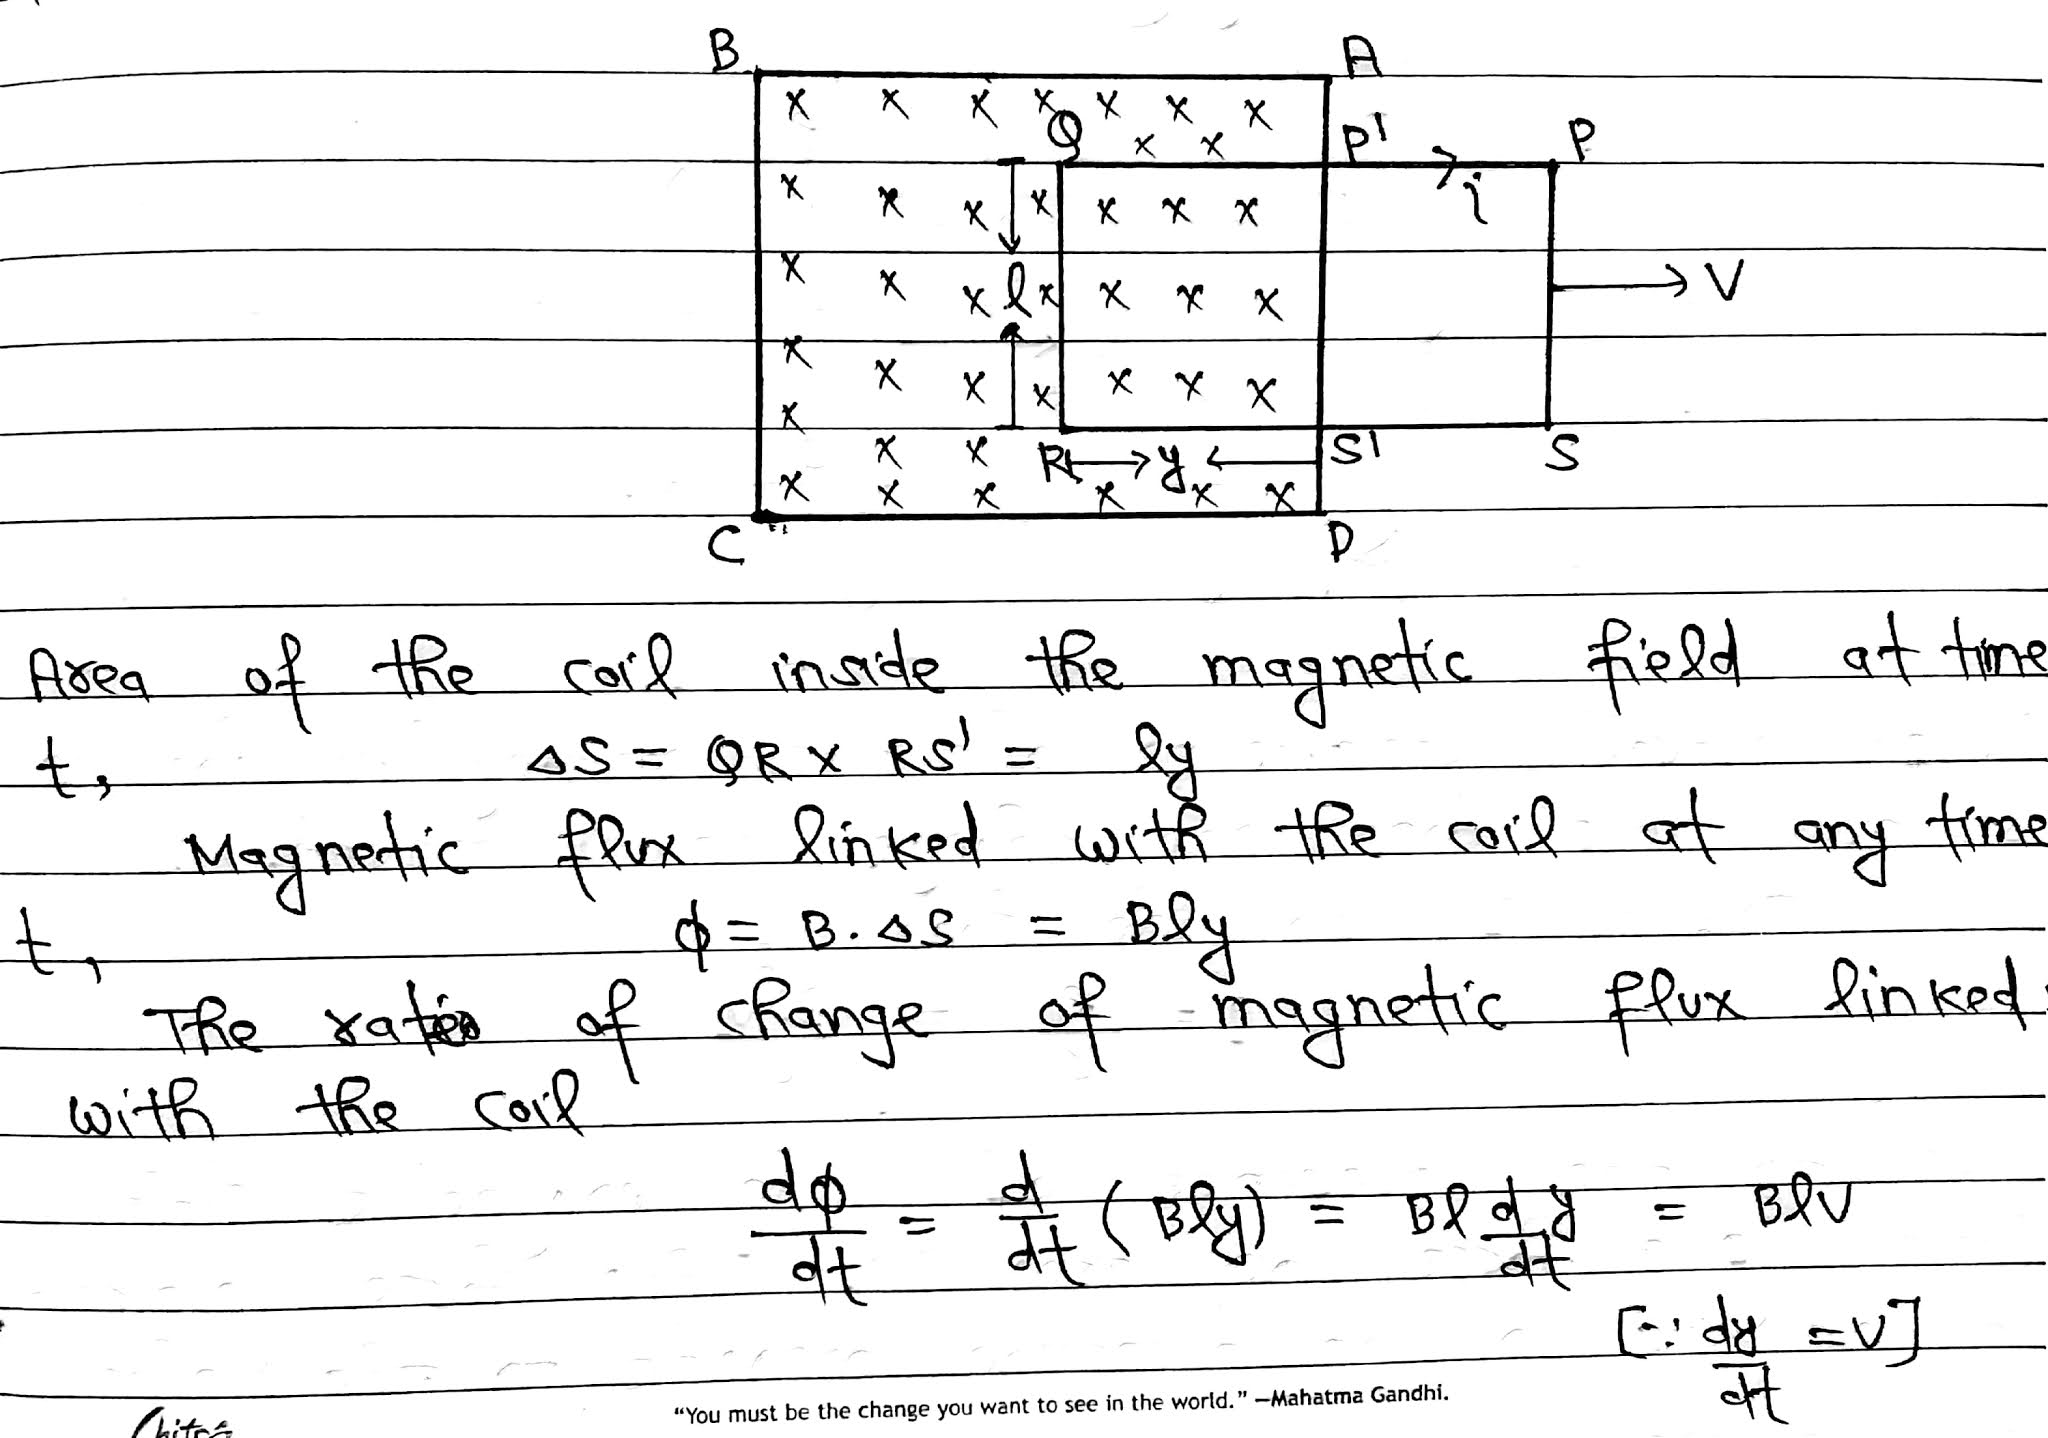 B A
x x x x x x x
Q x x P' P
i
x x x x x x x
l V
x x x x x x x
x x x x x x x
x
x x R y S' S
x x x x x x
C D
Area of the coil inside the magnetic field at time
t, ΔS = QR x RS' = ly
Magnetic flux linked with the coil at any time
t, ϕ = B.ΔS = Bly
The rate of change of magnetic flux linked
with the coil
dϕ/dt = d/dt (Bly) = Bl d/dt y = Blv
[∵ dy/dt = v]
"You must be the change you want to see in the world." —Mahatma Gandhi.